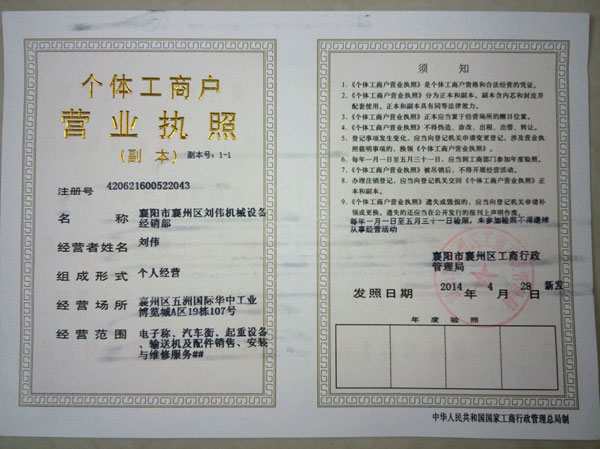 个体工商户
营业执照
（副 本） 副本号：1-1
注册号 420621600522043
名称 襄阳市襄州区刘伟机械设备
经销部
经营者姓名 刘伟
组成形式 个人经营
经营场所 襄州区五洲国际华中工业
博览城A区19栋107号
经营范围 电子称、汽车衡、起重设备
、输送机及配件销售、安装
与维修服务##
须 知
1. 《个体工商户营业执照》是个体工商户资格和合法经营的凭证。
2. 《个体工商户营业执照》分为正本和副本，副本含内芯和封皮并
配套使用。正本和副本具有同等法律效力。
3. 《个体工商户营业执照》正本应当置于经营场所的醒目位置。
4. 《个体工商户营业执照》不得伪造、涂改、出租、出借、转让。
5. 登记事项发生变化，应当向登记机关申请变更登记，涉及营业执
照载明事项的，换领《个体工商户营业执照》。
6. 每年一月一日至五月三十一日，应当到工商部门参加年度验照。
7. 《个体工商户营业执照》被吊销后，不得开展经营活动。
8. 办理注销登记，应当向登记机关交回《个体工商户营业执照》正
本和副本。
9. 《个体工商户营业执照》遗失或毁损的，应当向登记机关申请补
领或更换。遗失的还应当在公开发行的报刊上声明作废。
每年一月一日至五月三十一日验照，未参加验照不得继续
从事经营活动
襄阳市襄州区工商行政
管理局
发照日期 2014 年 4 月 28 日 新发
年度验照
中华人民共和国国家工商行政管理总局制